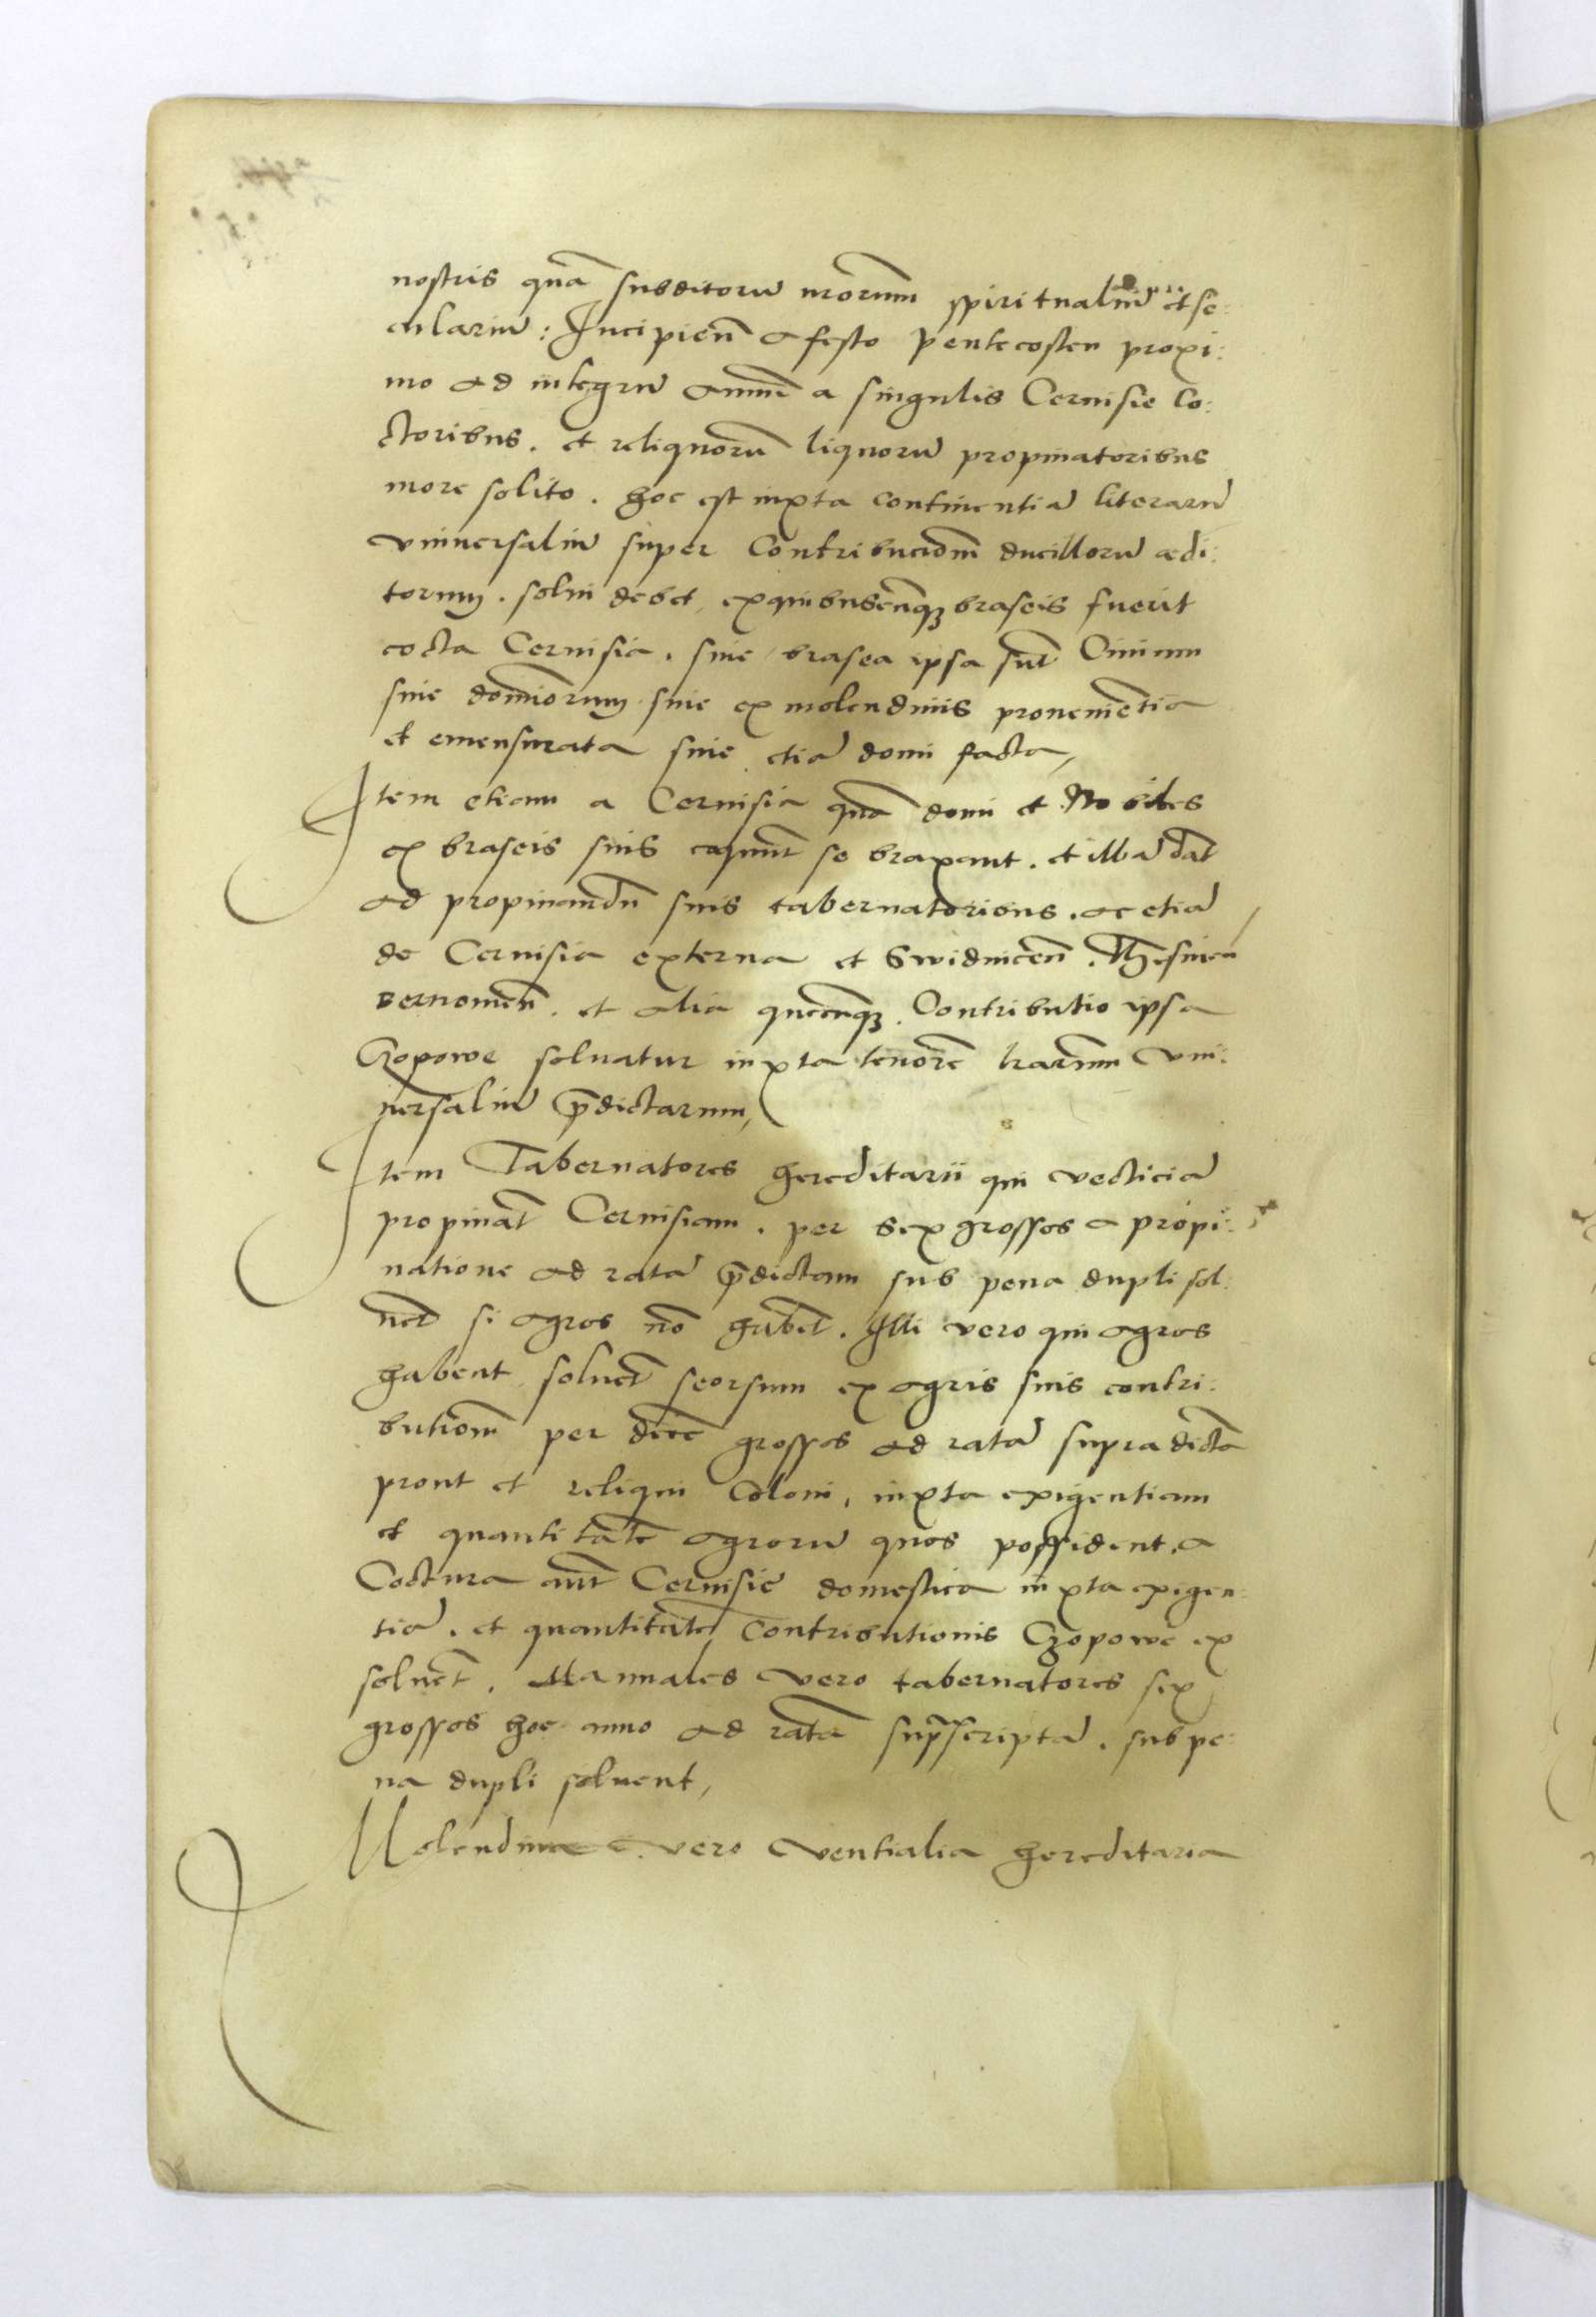 nostris quā subditorū nrorum spiritualiū et se:
culariū: Incipien̄ a festo Pentecosten proxi:
mo ad integrū annū a singulis Ceruisie co:
ctoribus. et reliquorū liquorū propinatoribus
more solito. hoc est iuxta continentiā literarū
vniuersaliū super Contribucionē ducillorū ædi:
torum. solui debet, exquibuscūq̢ braseis fuerit
cocta Ceruisia. siue brasea ipsa sūt Ciuium
siue domīorum siue ex molendinis prouenīetia
et emensurata siue etiā domi facta,
Item etiam a Ceruisia quā domi et Nobiles
ex braseis suis coquūt se braxant. et illā dāt
ad propinandū suis tabernatoribus. ac etiā
de Ceruisia externa et Swidnicen̄.
et alia quecūq̢. Contributio ipsa
Czopowe soluatur iuxta tenorē lrarum vni:
uersaliū p̄dictarum,
Item Tabernatores hereditarii qui vecticiā
propināt Ceruisiam. per sex grossos a propi:
natione ad ratā p̄dictam sub pena dupli sol:
uēt si agros nō habēt. Illi vero qui agros
habent soluēt seorsum ex agris suis contri:
butionē per decē grossos ad ratā supradictā
prout et reliqui Coloni, iuxta exigentiam
et quantitatē agrorū quos possident. a
Coctura aūt Ceruisie domestica iuxta exigen:
tiā. et quantitatē Contributionis Czopowe ex
soluēt. Manuales vero tabernatores sex
grossos hoc anno ad ratā sup̄scriptā. sub pe:
na dupli soluent,
Molendina vero ventialia hereditaria